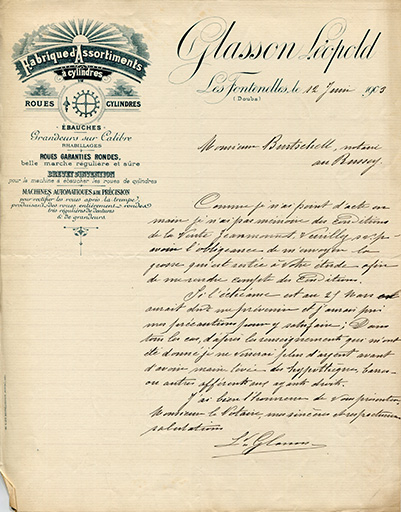 Fabrique d'Assortiments
à cylindres
ROUES CYLINDRES
ÉBAUCHES
Grandeurs sur Calibre
RHABILLAGES
ROUES GARANTIES RONDES,
belle marche régulière et sûre
pour la machine à ébaucher les roues de cylindres
MACHINES AUTOMATIQUES DE PRÉCISION
pour rectifier les roues après la trempe,
produisant des roues entièrement rondes
très régulières de dentures
& de grandeurs
Glasson Léopold
Les Fontenelles, le 12 Juin 1903
(Doubs)
Monsieur Burtschell, notaire
au Russey
Comme je n'ai point d'acte en
main je n'ai pas mémoire des Conditions
de la Vente Jeanmonnot, Veuillez
avoir l'obligeance de m'envoyer la
grosse qui est restée à votre étude afin
de me rendre compte des Conditions.
Si l'échéance est au 25 Mars
aurait dû me prévenir et j'aurais pris
mes précautions pour y satisfaire; Dans
tous les cas, d'après les renseignements qui m'ont
été donné je ne verserai plus d'argent avant
d'avoir main levée des hypothèques,
ou autres afférents aux ayants droits.
J'ai bien l'honneur de vous présenter,
Monsieur le Notaire, mes sincères et respectueuses
salutations
Ld Glasson